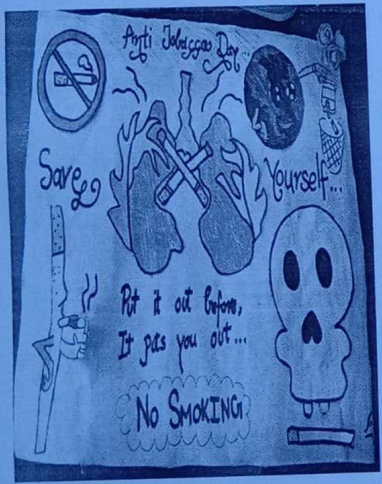 Anti Tobacco Day
Save Yourself...
Put it out before,
It puts you out...
NO SMOKING